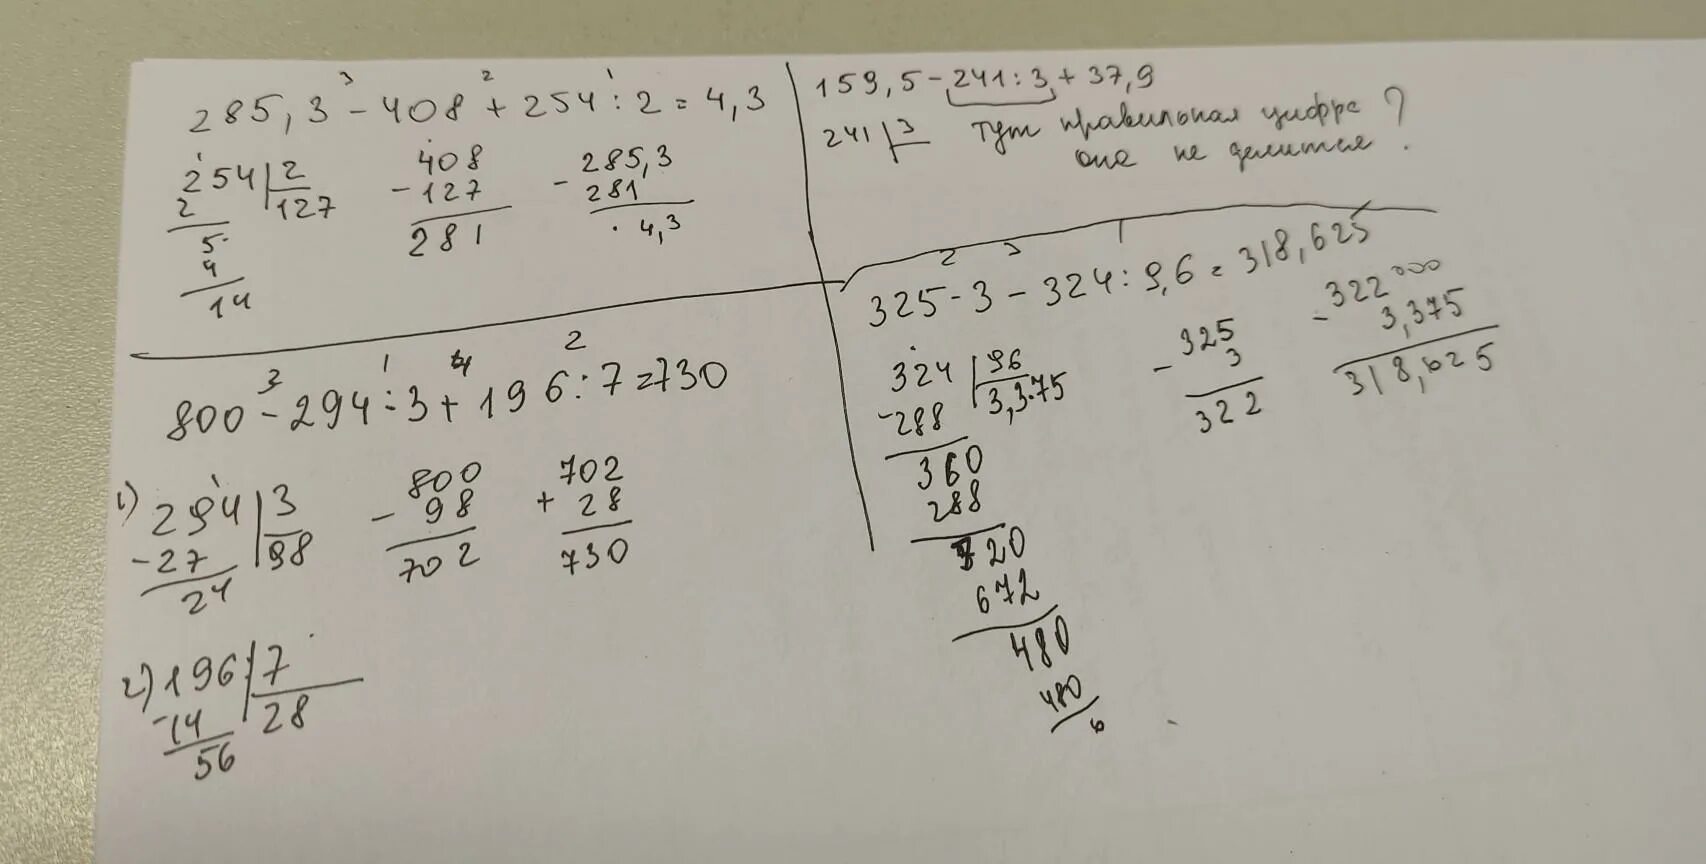 3 2 1
285,3 - 408 + 254 : 2 = 4,3
254 | 2
2 127
5
4
14
408
- 127
281
- 285,3
281
4,3
159,5 - 241 : 3 + 37,9
241 | 3 тут правильная цифра ?
она не делится .
3 1 4 2
800 - 294 ÷ 3 + 196 : 7 = 730
1) 294 | 3
- 27 98
24
- 800
98
702
702
+ 28
730
2) 196 | 7
- 14 28
56
2 3 1
325 - 3 - 324 : 9,6 = 318,625
324 | 96
- 288 3,375
360
288
720
672
480
480
0
- 325
3
322
- 322000
3,375
318,625